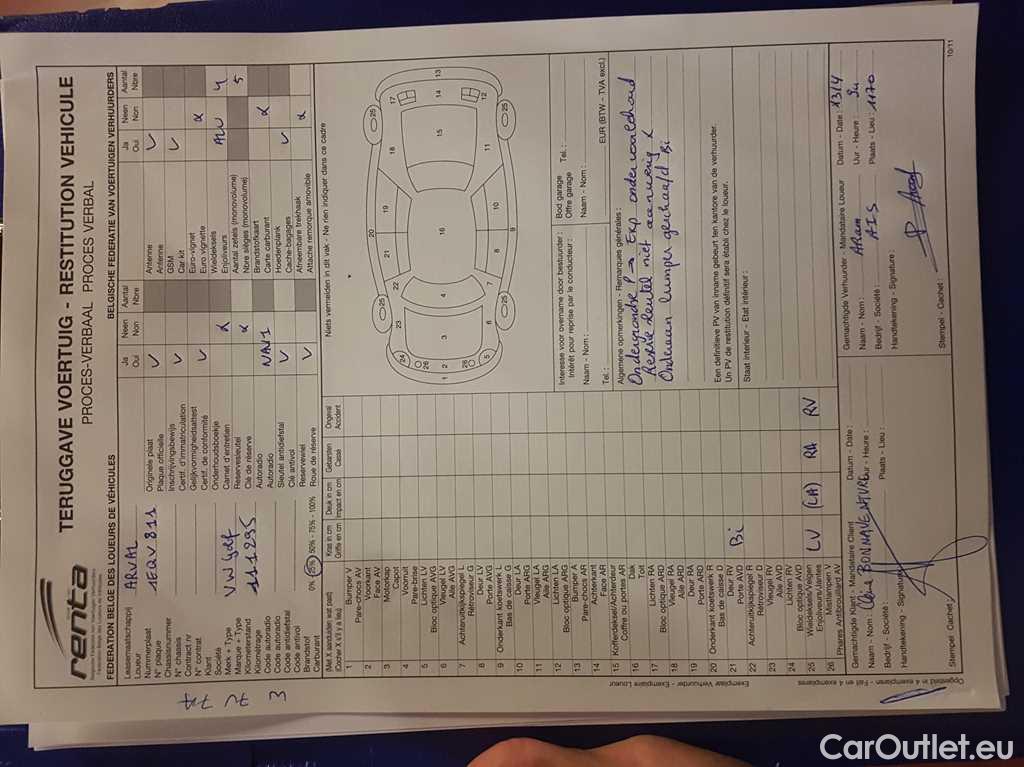 renta
TERUGGAVE VOERTUIG - RESTITUTION VEHICULE
PROCES-VERBAAL PROCES VERBAL
FEDERATION BELGE DES LOUEURS DE VÉHICULES
BELGISCHE FEDERATIE VAN VOERTUIGEN VERHUURDERS
Leasemaatschappij ARVAL
Loueur
Nummerplaat 1EQV 811
N° plaque
Chassisnummer
N° chassis
Contract nr
N° contrat
Klant
Société
Merk + Type VW Golf
Marque + Type
Kilometerstand 111295
Kilométrage
Code autoradio
Code autoradio
Code antidiefstal
Code antivol
Brandstof 0% 25% 50% - 75% - 100%
Carburant
Ja Neen Aantal
Oui Non Nbre
Originele plaat V
Plaque officielle
Inschrijvingsbewijs V
Certif. d'immatriculation
Gelijkvormigheidsattest V
Certif. de conformité
Onderhoudsboekje
Carnet d'entretien
Reservesleutel
Clé de réserve
Autoradio NAV1
Autoradio
Sleutel antidiefstal V
Clé antivol
Reservewiel V
Roue de réserve
Ja Neen Aantal
Oui Non Nbre
Antenne V
Antenne
GSM V
Car kit
Euro-vignet
Euro vignette
Wieldeksels ALU 4
Enjoliveurs
Aantal zetels (monovolume) 5
Nbre sièges (monovolume)
Brandstofkaart
Carte carburant
Hoedenplank V
Cache-bagages
Afneembare trekhaak
Attache remorque amovible
(Met X aanduiden wat past)
(Cocher X s'il y a lieu)
Kras in cm Deuk in cm Gebarsten Ongeval
Griffe en cm Impact en cm Cassé Accident
1 Bumper V
Pare-chocs AV
2 Voorkant
Face AV
3 Motorkap
Capot
4 Voorruit
Pare-brise
5 Lichten LV
Bloc optique AVG
6 Vleugel LV
Aile AVG
7 Achteruitkijkspiegel L
Rétroviseur G
8 Deur LV
Porte AVG
9 Onderkant koetswerk L
Bas de caisse G
10 Deur LA
Porte ARG
11 Vleugel LA
Aile ARG
12 Lichten LA
Bloc optique ARG
13 Bumper A
Pare-chocs AR
14 Achterkant
Face AR
15 Kofferdeksel/Achterdeur
Coffre ou portes AR
16 Dak
Toit
17 Lichten RA
Bloc optique ARD
18 Vleugel RA
Aile ARD
19 Deur RA
Porte ARD
20 Onderkant koetswerk R
Bas de caisse D
21 Deur RV Bi
Porte AVD
22 Achteruitkijkspiegel R
Rétroviseur D
23 Vleugel RV
Aile AVD
24 Lichten RV
Bloc optique AVD
25 Wieldeksels/Velgen LV (LA) RA RV
Enjoliveurs/Jantes
26 Mistlampen V
Phares Antibrouillard AV
Niets vermelden in dit vak - Ne rien indiquer dans ce cadre
Interesse voor overname door bestuurder :
Intérêt pour reprise par le conducteur :
Naam - Nom :
Tel. :
Bod garage Tel. :
Offre garage
Naam - Nom :
EUR (BTW – TVA excl.)
Algemene opmerkingen - Remarques générales :
Een definitieve PV van inname gebeurt ten kantore van de verhuurder.
Un PV de restitution définitif sera établi chez le loueur.
Staat interieur - Etat intérieur :
Gemachtigde Klant - Mandataire Client Datum - Date :
Naam - Nom : BONNAVENTURE Uur - Heure :
Bedrijf - Société : Plaats - Lieu :
Handtekening - Signature :
Stempel - Cachet :
Gemachtigde Verhuurder - Mandataire Loueur Datum - Date : 13/4
Naam - Nom : Uur - Heure :
Bedrijf - Société : AIS Plaats - Lieu : 1170
Handtekening - Signature :
Stempel - Cachet :
Exemplaar Verhuurder - Exemplaire Loueur
Opgesteld in 4 exemplaren - Fait en 4 exemplaires
10/11
CarOutlet.eu